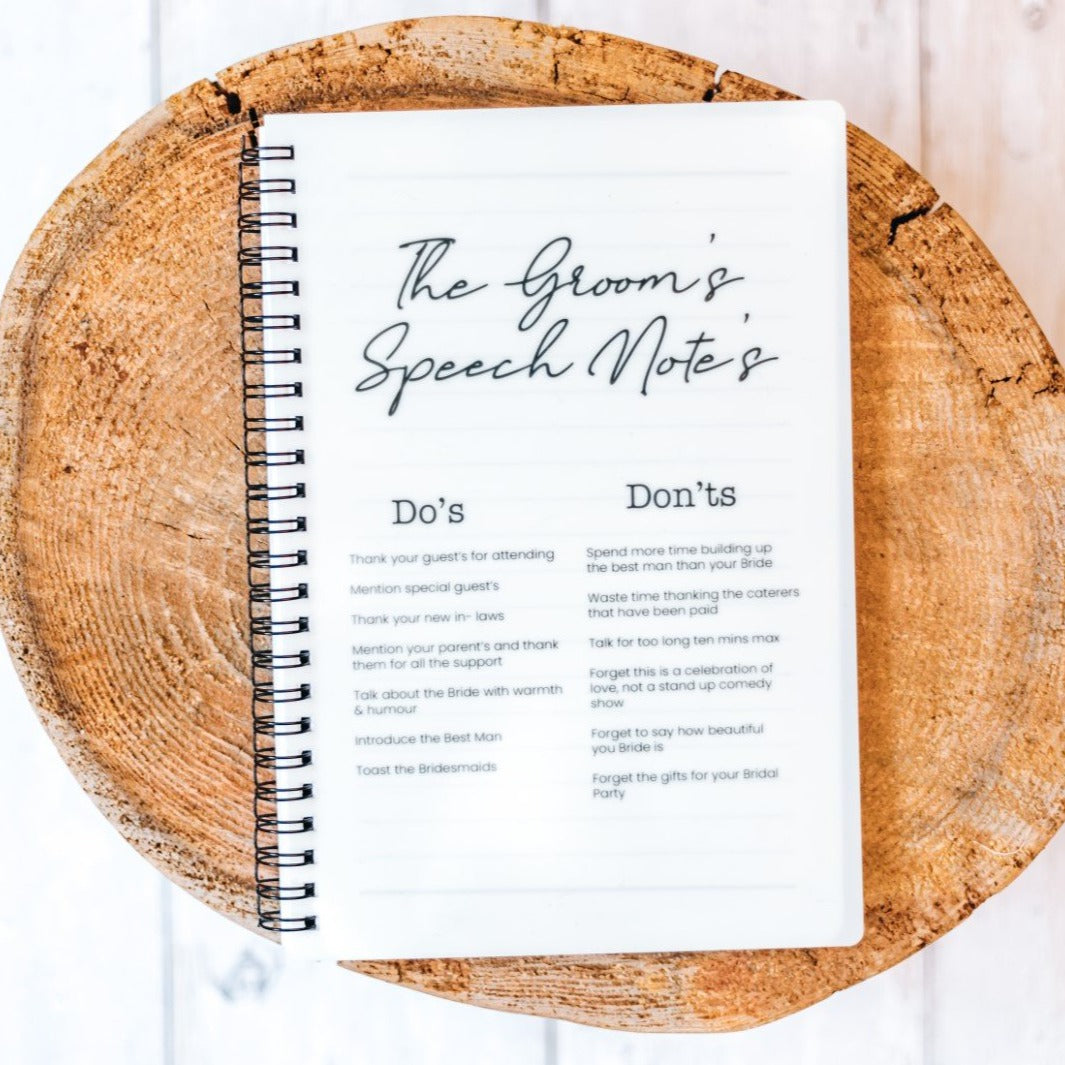 The Groom's
Speech Note's
Do's
Thank your guest's for attending
Mention special guest's
Thank your new in- laws
Mention your parent's and thank
them for all the support
Talk about the Bride with warmth
& humour
Introduce the Best Man
Toast the Bridesmaids
Don'ts
Spend more time building up
the best man than your Bride
Waste time thanking the caterers
that have been paid
Talk for too long ten mins max
Forget this is a celebration of
love, not a stand up comedy
show
Forget to say how beautiful
you Bride is
Forget the gifts for your Bridal
Party